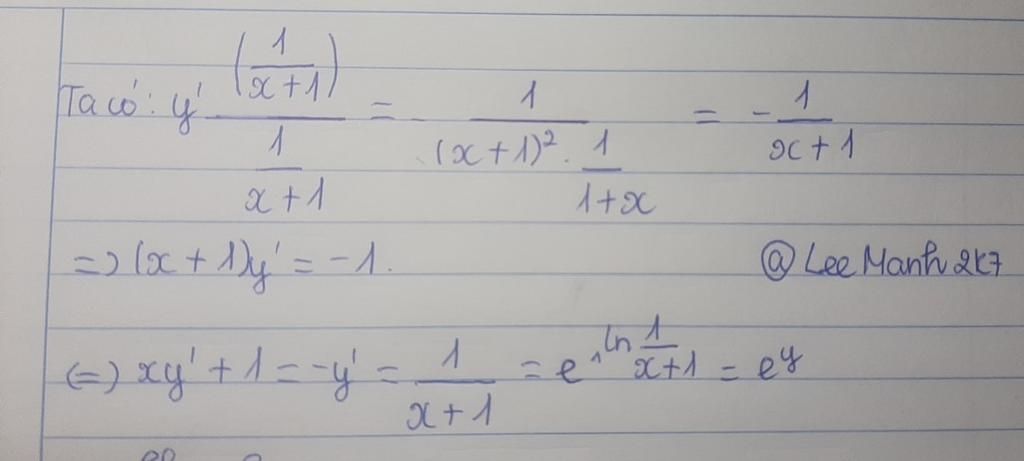 Ta có: y' (1/(x+1)) / (1/(x+1)) = - 1/((x+1)². 1/(1+x)) = - 1/(x+1)
=> (x+1)y' = -1.
@LeeManh2k7
(=) xy' + 1 = -y' = 1/(x+1) = e^(ln 1/(x+1)) = e^y